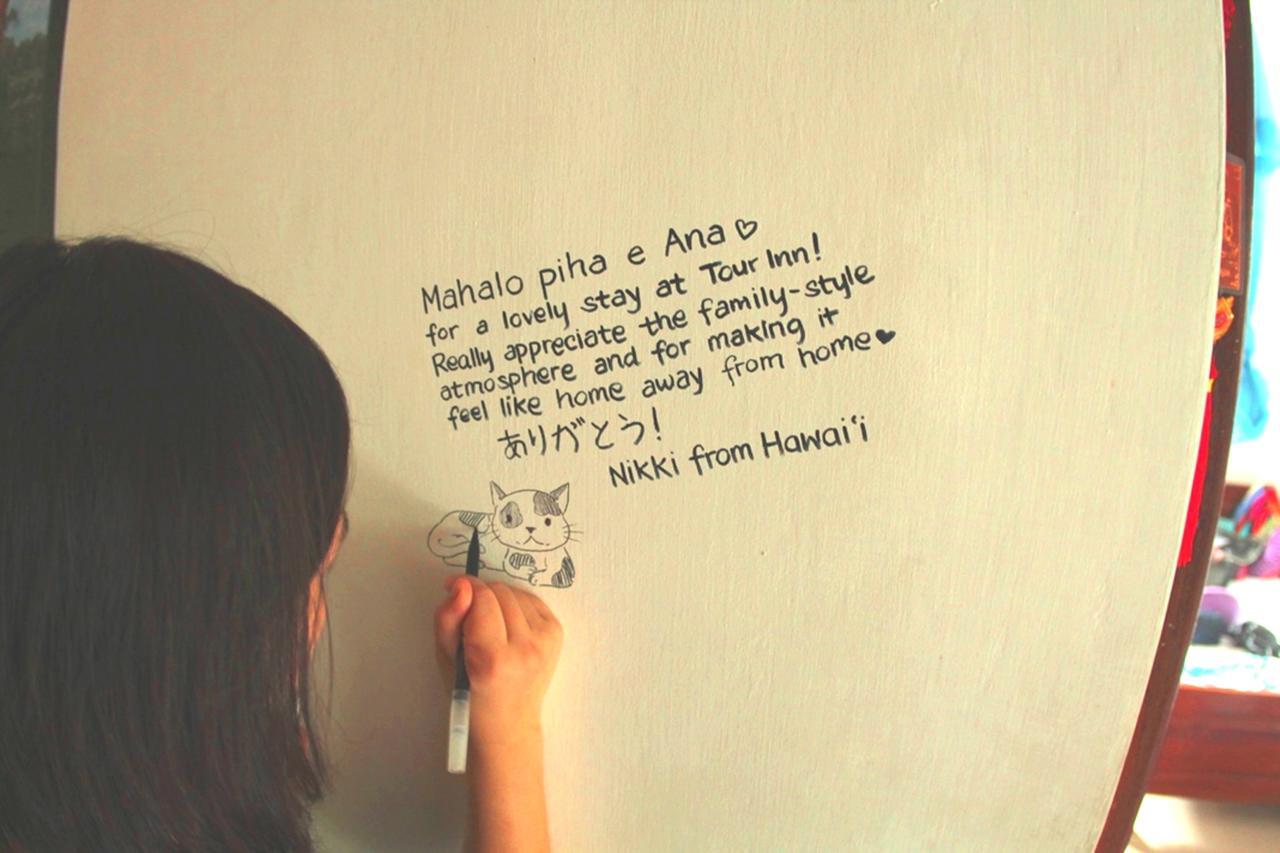 Mahalo piha e Ana ♡
for a lovely stay at Tour Inn!
Really appreciate the family-style
atmosphere and for making it
feel like home away from home ♥
ありがとう!
Nikki from Hawai'i